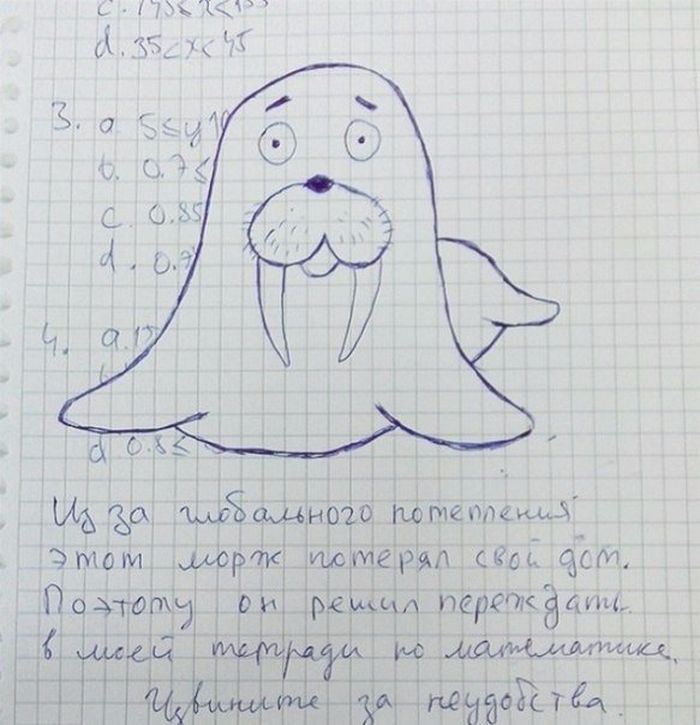 c. 145≤x≤155
d. 35<x<45
3. a 5≤y
b. 0.7≤
c 0.85
d. 0.7
4. a.
d 0.8≤
Из за глобального потепления
этот морж потерял свой дом.
Поэтому он решил переждать
в моей тетради по математике.
Извините за неудобства.